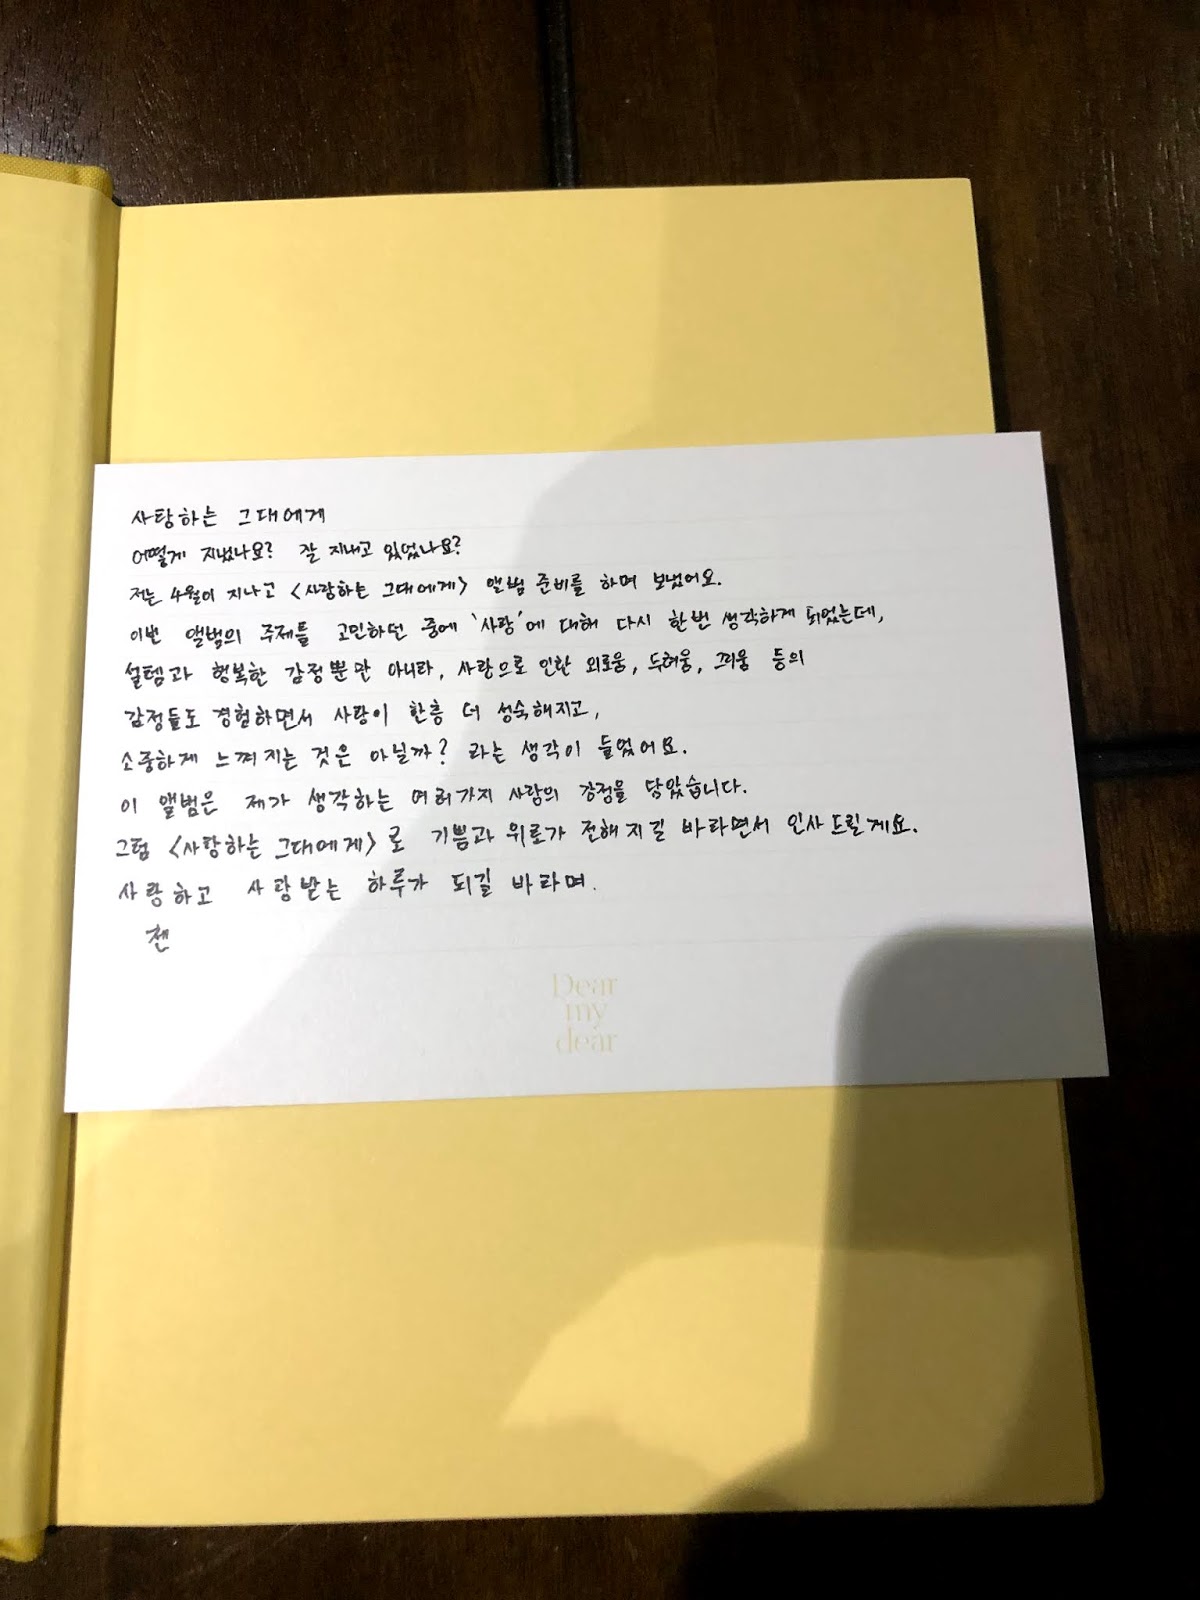 사랑하는 그대에게
어떻게 지냈나요? 잘 지내고 있었나요?
저는 4월이 지나고 <사랑하는 그대에게> 앨범 준비를 하며 보냈어요.
이번 앨범의 주제를 고민하던 중에 '사랑'에 대해 다시 한번 생각하게 되었는데,
설렘과 행복한 감정뿐만 아니라, 사랑으로 인한 외로움, 두려움, 미움 등의
감정들도 경험하면서 사랑이 한층 더 성숙해지고,
소중하게 느껴지는 것은 아닐까? 라는 생각이 들었어요.
이 앨범은 제가 생각하는 여러가지 사랑의 감정을 담았습니다.
그럼 <사랑하는 그대에게>로 기쁨과 위로가 전해지길 바라면서 인사드릴게요.
사랑하고 사랑받는 하루가 되길 바라며.
첸
Dear
my
dear